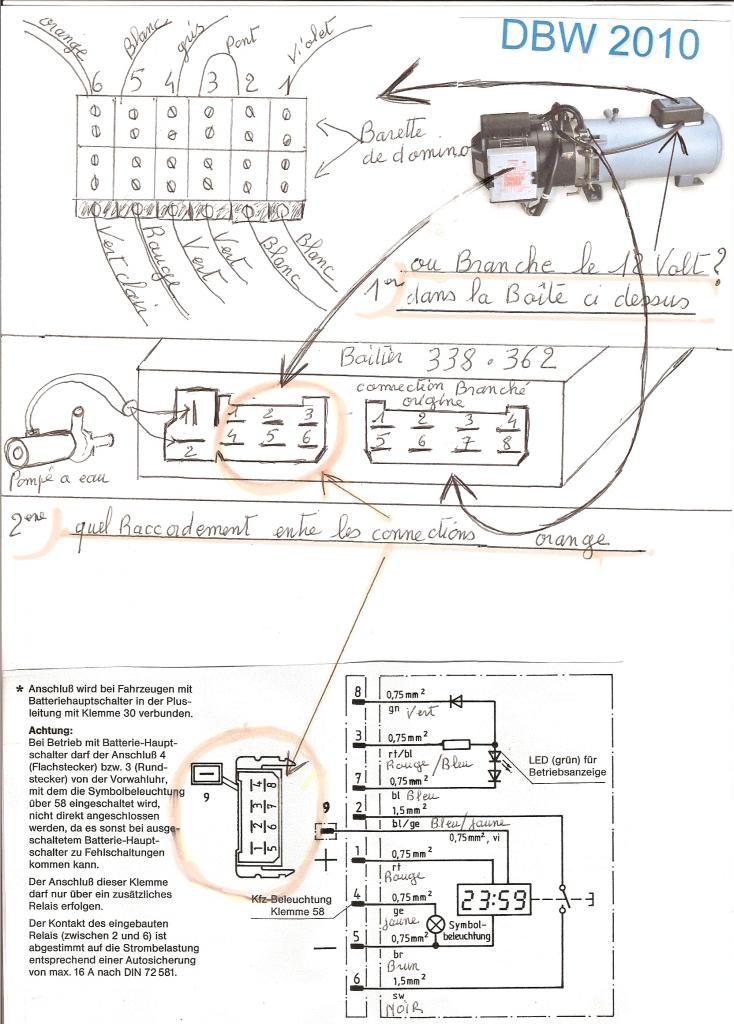 DBW 2010
orange Blanc gris Pont Violet
6 5 4 3 2 1
Barette
de domino
Vert clair Rouge Vert Vert Blanc Blanc
ou Branche le 12 Volt?
1er dans la Boîte ci dessus
Boîtier 338.362
connection Branché
origine
1
2
1 2 3
4 5 6
1 2 3 4
5 6 7 8
Pompe a eau
2eme quel Raccordement entre les connections orange
* Anschluß wird bei Fahrzeugen mit
Batteriehauptschalter in der Plus-
leitung mit Klemme 30 verbunden.
Achtung:
Bei Betrieb mit Batterie-Haupt-
schalter darf der Anschluß 4
(Flachstecker) bzw. 3 (Rund-
stecker) von der Vorwahluhr,
mit dem die Symbolbeleuchtung
über 58 eingeschaltet wird,
nicht direkt angeschlossen
werden, da es sonst bei ausge-
schaltetem Batterie-Haupt-
schalter zu Fehlschaltungen
kommen kann.
Der Anschluß dieser Klemme
darf nur über ein zusätzliches
Relais erfolgen.
Der Kontakt des eingebauten
Relais (zwischen 2 und 6) ist
abgestimmt auf die Strombelastung
entsprechend einer Autosicherung
von max. 16 A nach DIN 72 581.
9
4 8
3 7
2 6
1 5
8 0,75 mm²
gn Vert
3 0,75 mm²
rt/bl
Rouge/Bleu
LED (grün) für
Betriebsanzeige
7 0,75 mm²
bl Bleu
2 1,5 mm²
bl/ge Bleu/Jaune
9 0,75 mm², vi
+ 1 0,75 mm²
rt
Rouge
23:59
Kfz-Beleuchtung
Klemme 58
4 0,75 mm²
ge
Jaune
Symbol-
beleuchtung
− 5 0,75 mm²
br
Brun
6 1,5 mm²
sw
NOIR